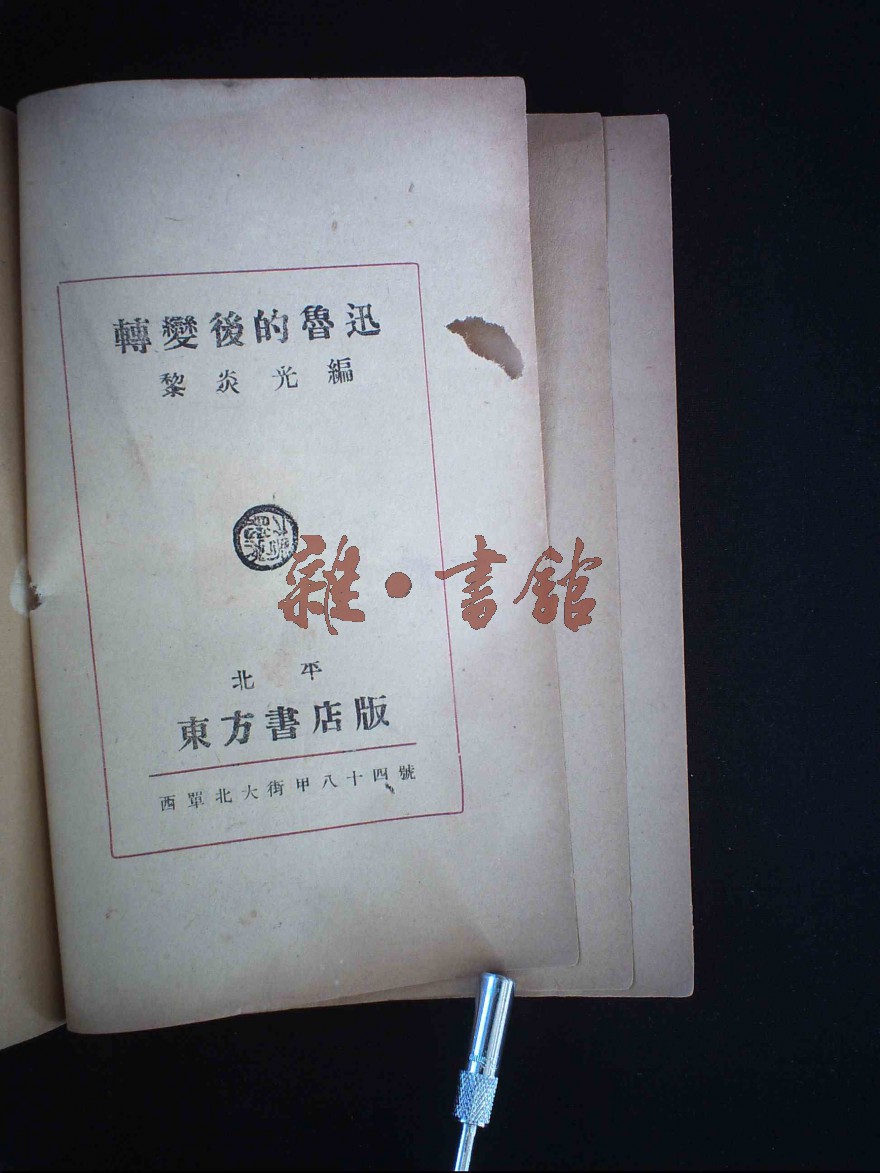 轉變後的魯迅
黎炎光編
雜·書館
北平
東方書店版
西單北大街甲八十四號